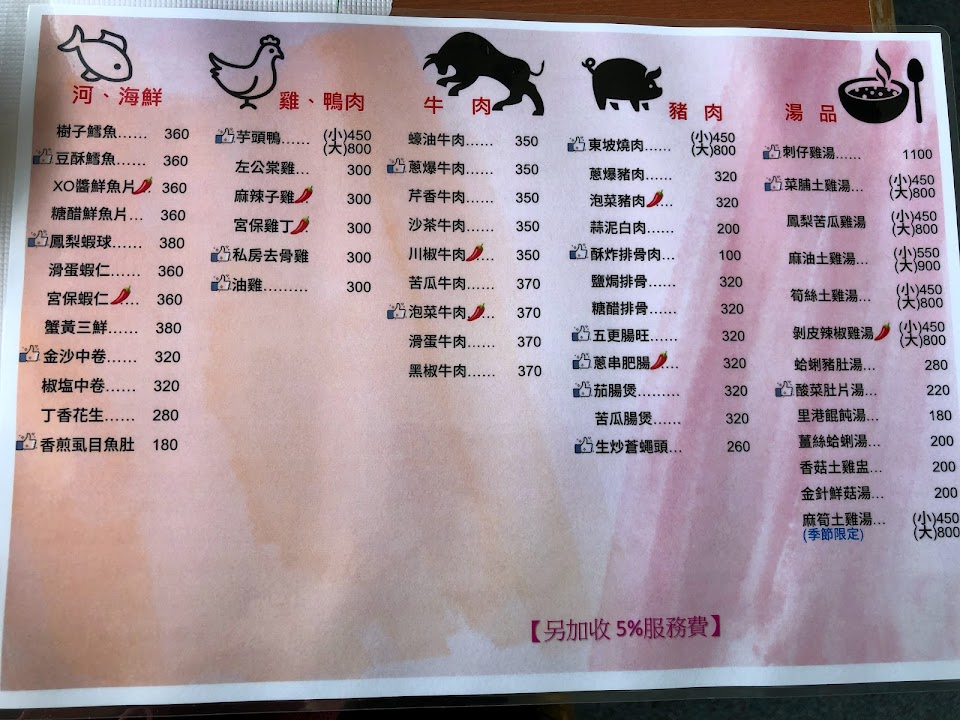 河、海鮮
樹子鱈魚...... 360
豆酥鱈魚...... 360
XO醬鮮魚片 360
糖醋鮮魚片... 360
鳳梨蝦球...... 380
滑蛋蝦仁...... 360
宮保蝦仁...... 360
蟹黃三鮮...... 380
金沙中卷...... 320
椒塩中卷...... 320
丁香花生...... 280
香煎虱目魚肚 180
雞、鴨肉
芋頭鴨...... (小)450
(大)800
左公棠雞... 300
麻辣子雞 300
宮保雞丁 300
私房去骨雞 300
油雞......... 300
牛 肉
蠔油牛肉...... 350
蔥爆牛肉...... 350
芹香牛肉...... 350
沙茶牛肉...... 350
川椒牛肉...... 350
苦瓜牛肉...... 370
泡菜牛肉...... 370
滑蛋牛肉...... 370
黑椒牛肉...... 370
豬 肉
東坡燒肉...... (小)450
(大)800
蔥爆豬肉...... 320
泡菜豬肉...... 320
蒜泥白肉...... 200
酥炸排骨肉... 100
鹽焗排骨...... 320
糖醋排骨...... 320
五更腸旺...... 320
蔥串肥腸...... 320
茄腸煲......... 320
苦瓜腸煲...... 320
生炒蒼蠅頭... 260
湯 品
刺仔雞湯...... 1100
菜脯土雞湯... (小)450
(大)800
鳳梨苦瓜雞湯 (小)450
(大)800
麻油土雞湯... (小)550
(大)900
筍絲土雞湯... (小)450
(大)800
剝皮辣椒雞湯 (小)450
(大)800
蛤蜊豬肚湯... 280
酸菜肚片湯... 220
里港餛飩湯... 180
薑絲蛤蜊湯... 200
香菇土雞盅... 200
金針鮮菇湯... 200
麻筍土雞湯... (小)450
(季節限定) (大)800
【另加收 5%服務費】